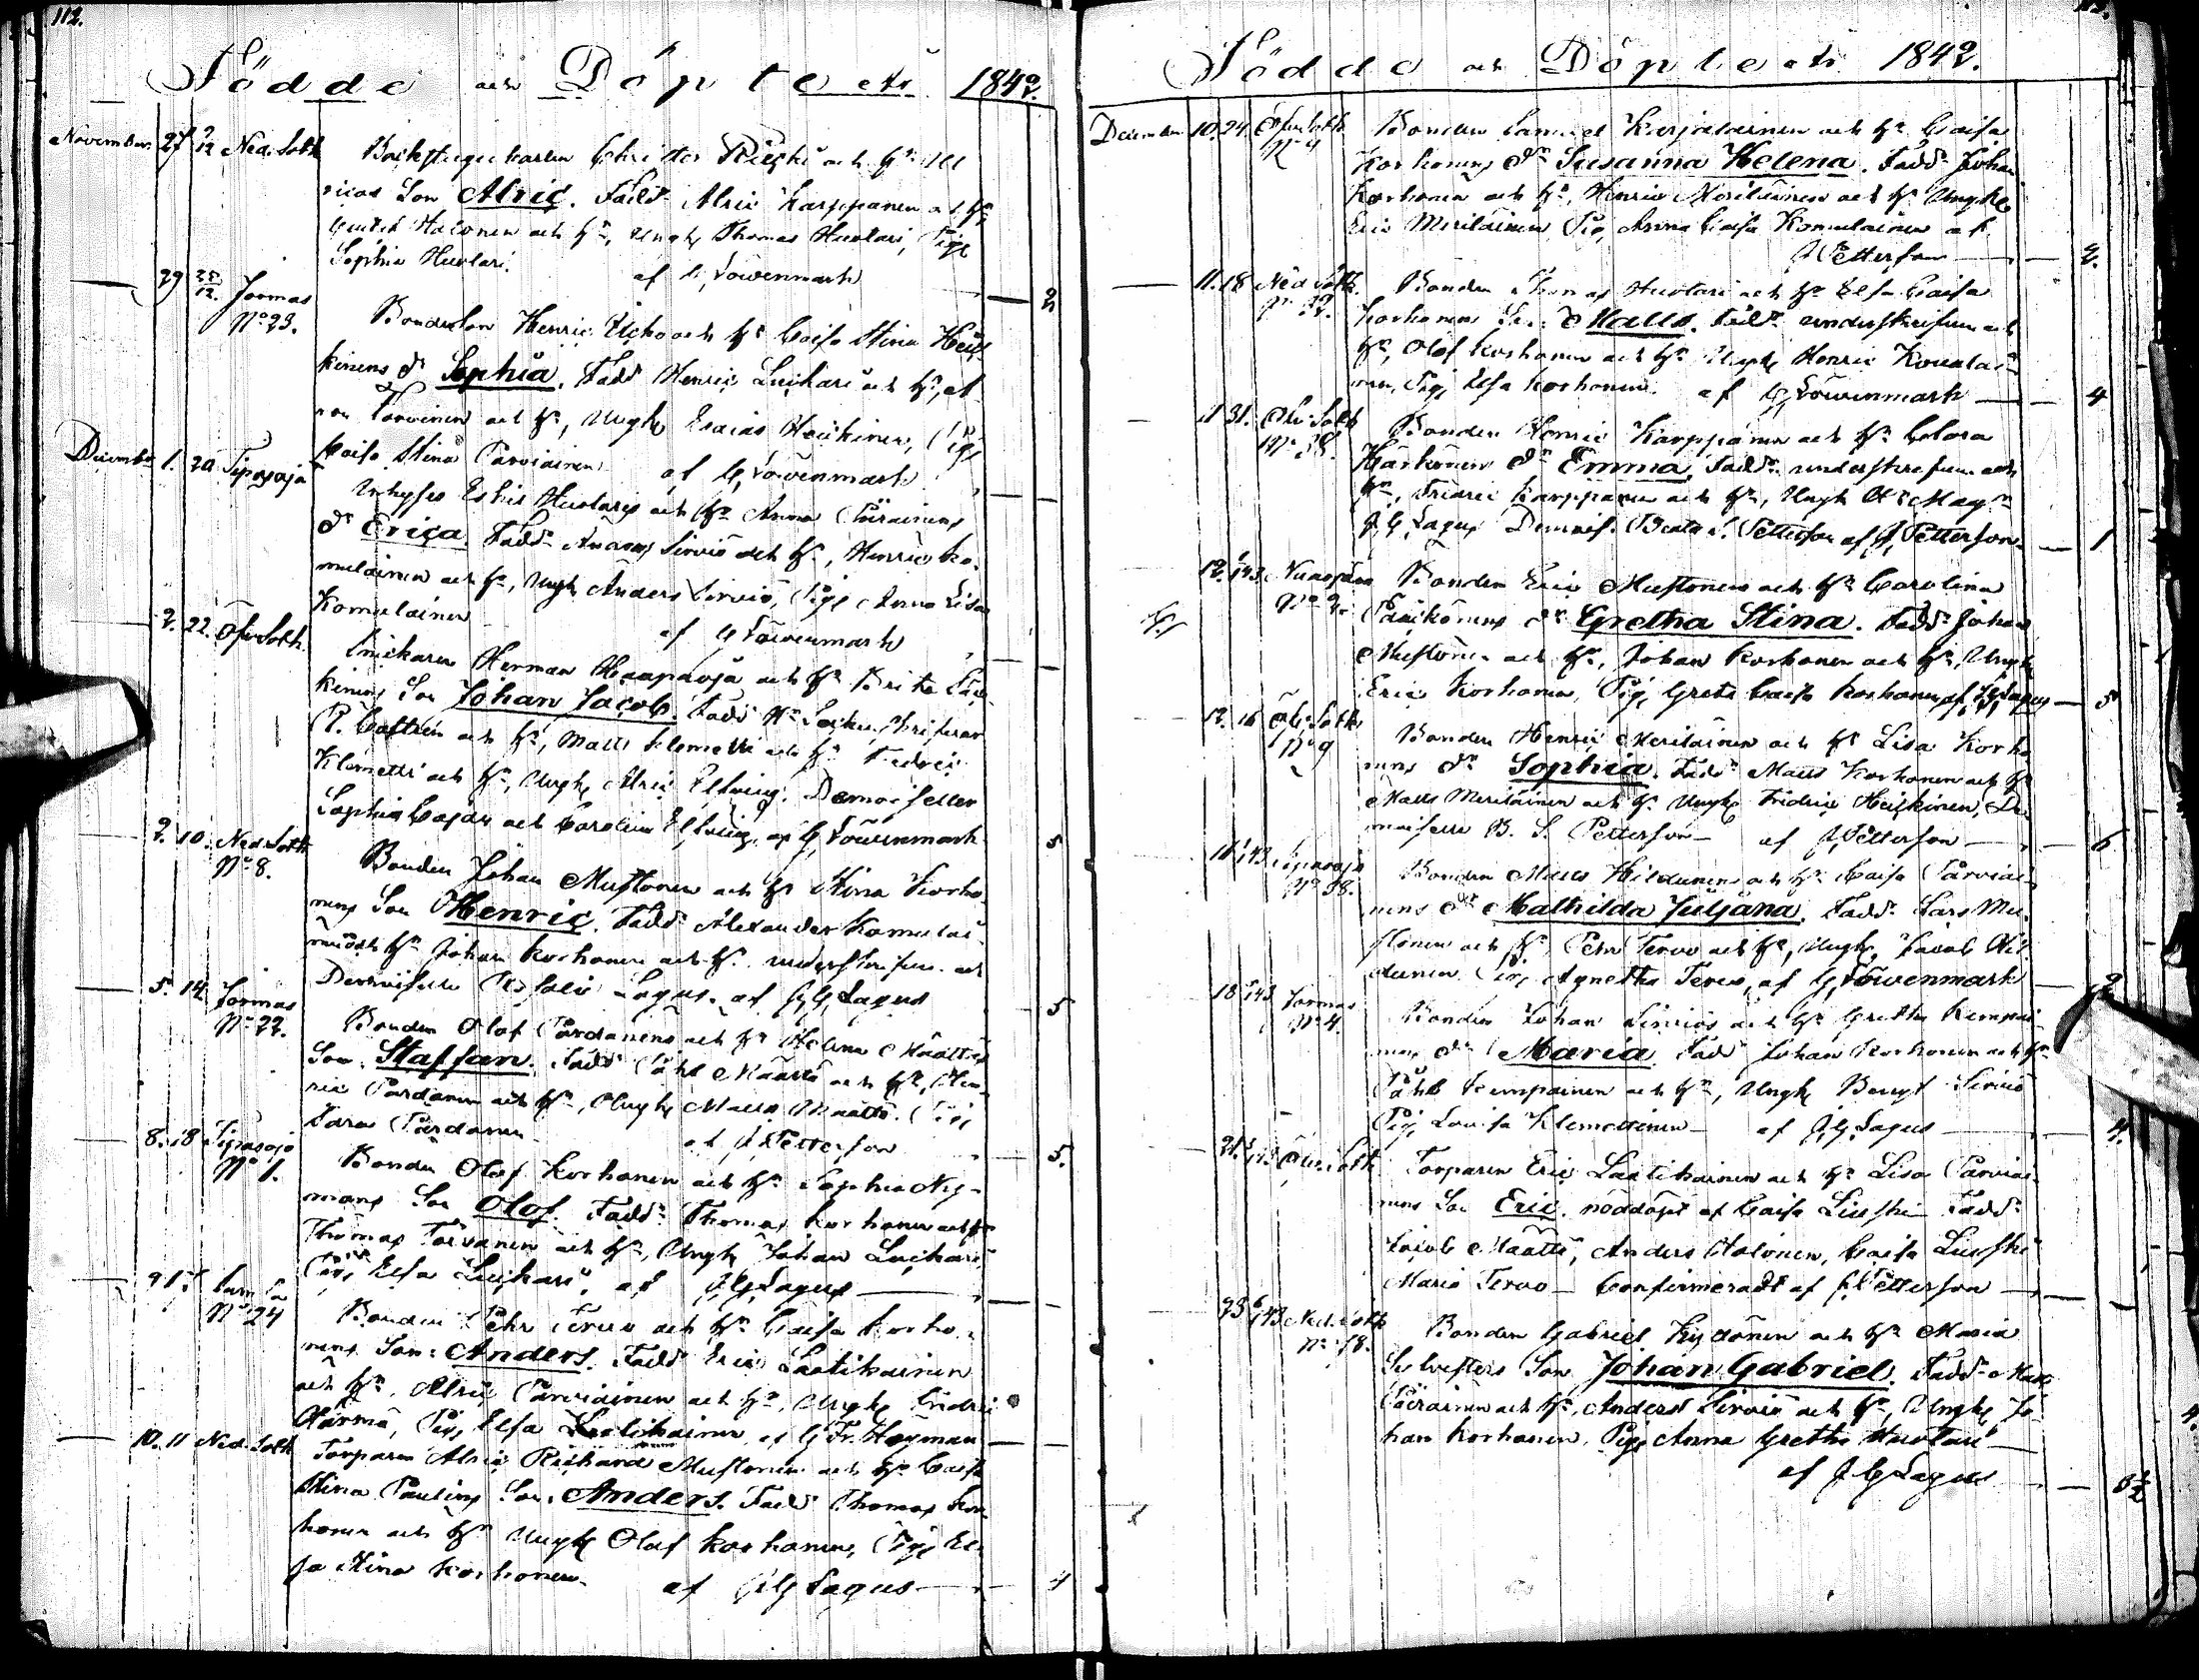 112.
Födde och Döpte År 1842.
November 27 2/12 Ned. Sotk. Backstugukarlen Christer Räisäs och h:u Ul
ricas Son Alric. Fadd: Alric Karppanen och h:u
Halonen och h:u, Yngl Thomas Huotari, Pig
Sophia Huotari. af G, Löwenmark 2
29 25/12. Jormas Bondeson Henric och h:u Caisa Stina Heis
N:o 23. kinens Dr Sophia. Fadd Henric Leskari och h:u,
Torvinen och h:u, Yngl Esaias Heiskinen, Pig
Caisa Stina Parviainen af G, Löwenmark
December 1. 20 Tipasoja Inhyses Eskil Huotaris och h:u Anna Pääräinens
Dr Erica. Fadd: Anders Sirviö och h:u, Henric Ko
mulainen och h:u, Yngl Anders Sirviö, Pig Anna Lisa
Komulainen af G Löwenmark
2. 22. Öfv. Sotk. Snickaren Herman Haapaoja och h:u Brita
kinens Son Johan Jacob. Fadd H:r Sockne Skrifvar
P. Castrén och h:u, Matts Klemetti och h:u Fredric
Klemetti och h:u, Yngl Alric Elfving. Demoiseller
Sophia Cajan och Carolin Elfving, af G, Löwenmark 5
2. 10. Ned. Sotk Bonden Johan Mustonen och h:u Stina Korho
N:o 8. nens Son Henric. Fadd: Alexander Komulai
nen och h:u Johan Korhonen och h:u. underskrifven och
Demoiselle Rosalie Lagus. af J G Lagus 5
5. 14. Jormas Bonden Olof Pärdänens och h:u Helena Määttäs
N:o 22. Son Staffan. Fadd: Påhl Määttä och h:u, Hen
ric Pärdänen och h:u, Yngl Matts Määttä. Pig
Sara Pärdänen af J Petterson 5.
8. 18 Tipasoja Bonden Olof Korhonen och h:u Sophia Ny
N:o 1. mans Son Olof. Fadd: Thomas Korhonen och h:u
Thomas Torvanen och h:u, Yngl Johan Leskari
Pig Elsa Leskari, af J G Lagus
9 Bonden Pehr Tervo och h:u Caisa Korho
N:o 24 nens Son: Anders. Fadd Eric Laatikainen
och h:u, Alric Parviainen och h:u, Yngl Fredric
Härmä, Pig Elsa Laatikainen af G Fr. Heyman
10. 11 Ned. Sotk Torparen Alric Richard Mustonen och h:u Caisa
Stina Paulins Son: Anders. Fadd Thomas Kor
honen och h:u Yngl Olof Korhonen, Pig El
sa Stina Korhonen. af J G Lagus 4
Födde och Döpte År 1842.
December 10. 24. Öfv. Sotk Bonden Samuel Karjalainen och h:u Caisa
N:o 4 Korhonens Dr Susanna Helena. Fadd: Johan
Korhonen och h:u, Henric Meriläinen och h:u Yngl
Eric Meriläinen, Pig Anna Caisa Komulainen af
J Petterson 2.
11. 18 Ned Sotk. Bonden Thomas Huotari och h:u Elsa Caisa
Korhonens Son Matts. Fadd: underskrifven och
h:u, Olof Korhonen och h:u Yngl Henric Kovalai
nen, Pig Elsa Korhonen. af G, Löwenmark 4
11 31. Öfv. Sotk Bonden Henric Karppanen och h:u Clara
N:o 38. Härkönens Dr Emma. Fadd: underskrifven och
h:u, Fredric Karppanen och h:u, Yngl Hr Mag:n
J. G. Lagus Demois. Beata S. Petterson af J, Petterson. 1
12. 1/43 Bonden Eric Mustonens och h:u Carolina
Pääskönens Dr Gretha Stina. Fadd: Johan
Mustonen och h:u, Johan Korhonen och h:u, Yngl
Eric Korhonen, Pig Greta Caisa Korhonen af J G Lagus 5
12. 16 Öfv. Sotk Bonden Henric Meriläinen och h:u Lisa Korho
N:o 9 nens Dr Sophia. Fadd: Matts Korhonen och h:u
Matts Meriläinen och h:u Yngl Fredric Heiskinen, De
moiselle B. S. Petterson af J Petterson 6
16 1/43 Tipasoja Bonden Matts Hildunens och h:u Caisa Parviai
N:o 38. nens Dr Mathilda Juljana. Fadd: Lars Mu
stonen och h:u, Pehr Tervo och h:u, Yngl Jacob Hil
dunen Pig Agnetha Tervo, af G, Löwenmark
18 1/43 Jormas Bonden Johan Sirviös och h:u Gretha Kempai
N:o 4. nens Dr Maria. Fadd: Johan Korhonen och h:u
Påhl Kempainen och h:u, Yngl Bengt Sirviö
Pig Lovisa Klemettinen af J. G Lagus 4.
21. Öfv. Sotk Torparen Eric Laatikainen och h:u Lisa Parviai
nens Son Eric. nöddöpt af Caisa Lieski Fadd:
Jacob Määttä, Anders Halonen, Caisa Lieski
Maria Tervo Confirmeradt af J Petterson
23 6/43 Ned. Sotk Bonden Gabriel Kydönen och h:u Maria
N:o 18. Sylvesters Son Johan Gabriel. Fadd: Matts
Pääräinen och h:u, Anders Sirviö och h:u, Yngl Jo
han Korhonen, Pig Anna Gretha Huotari
af J G Lagus